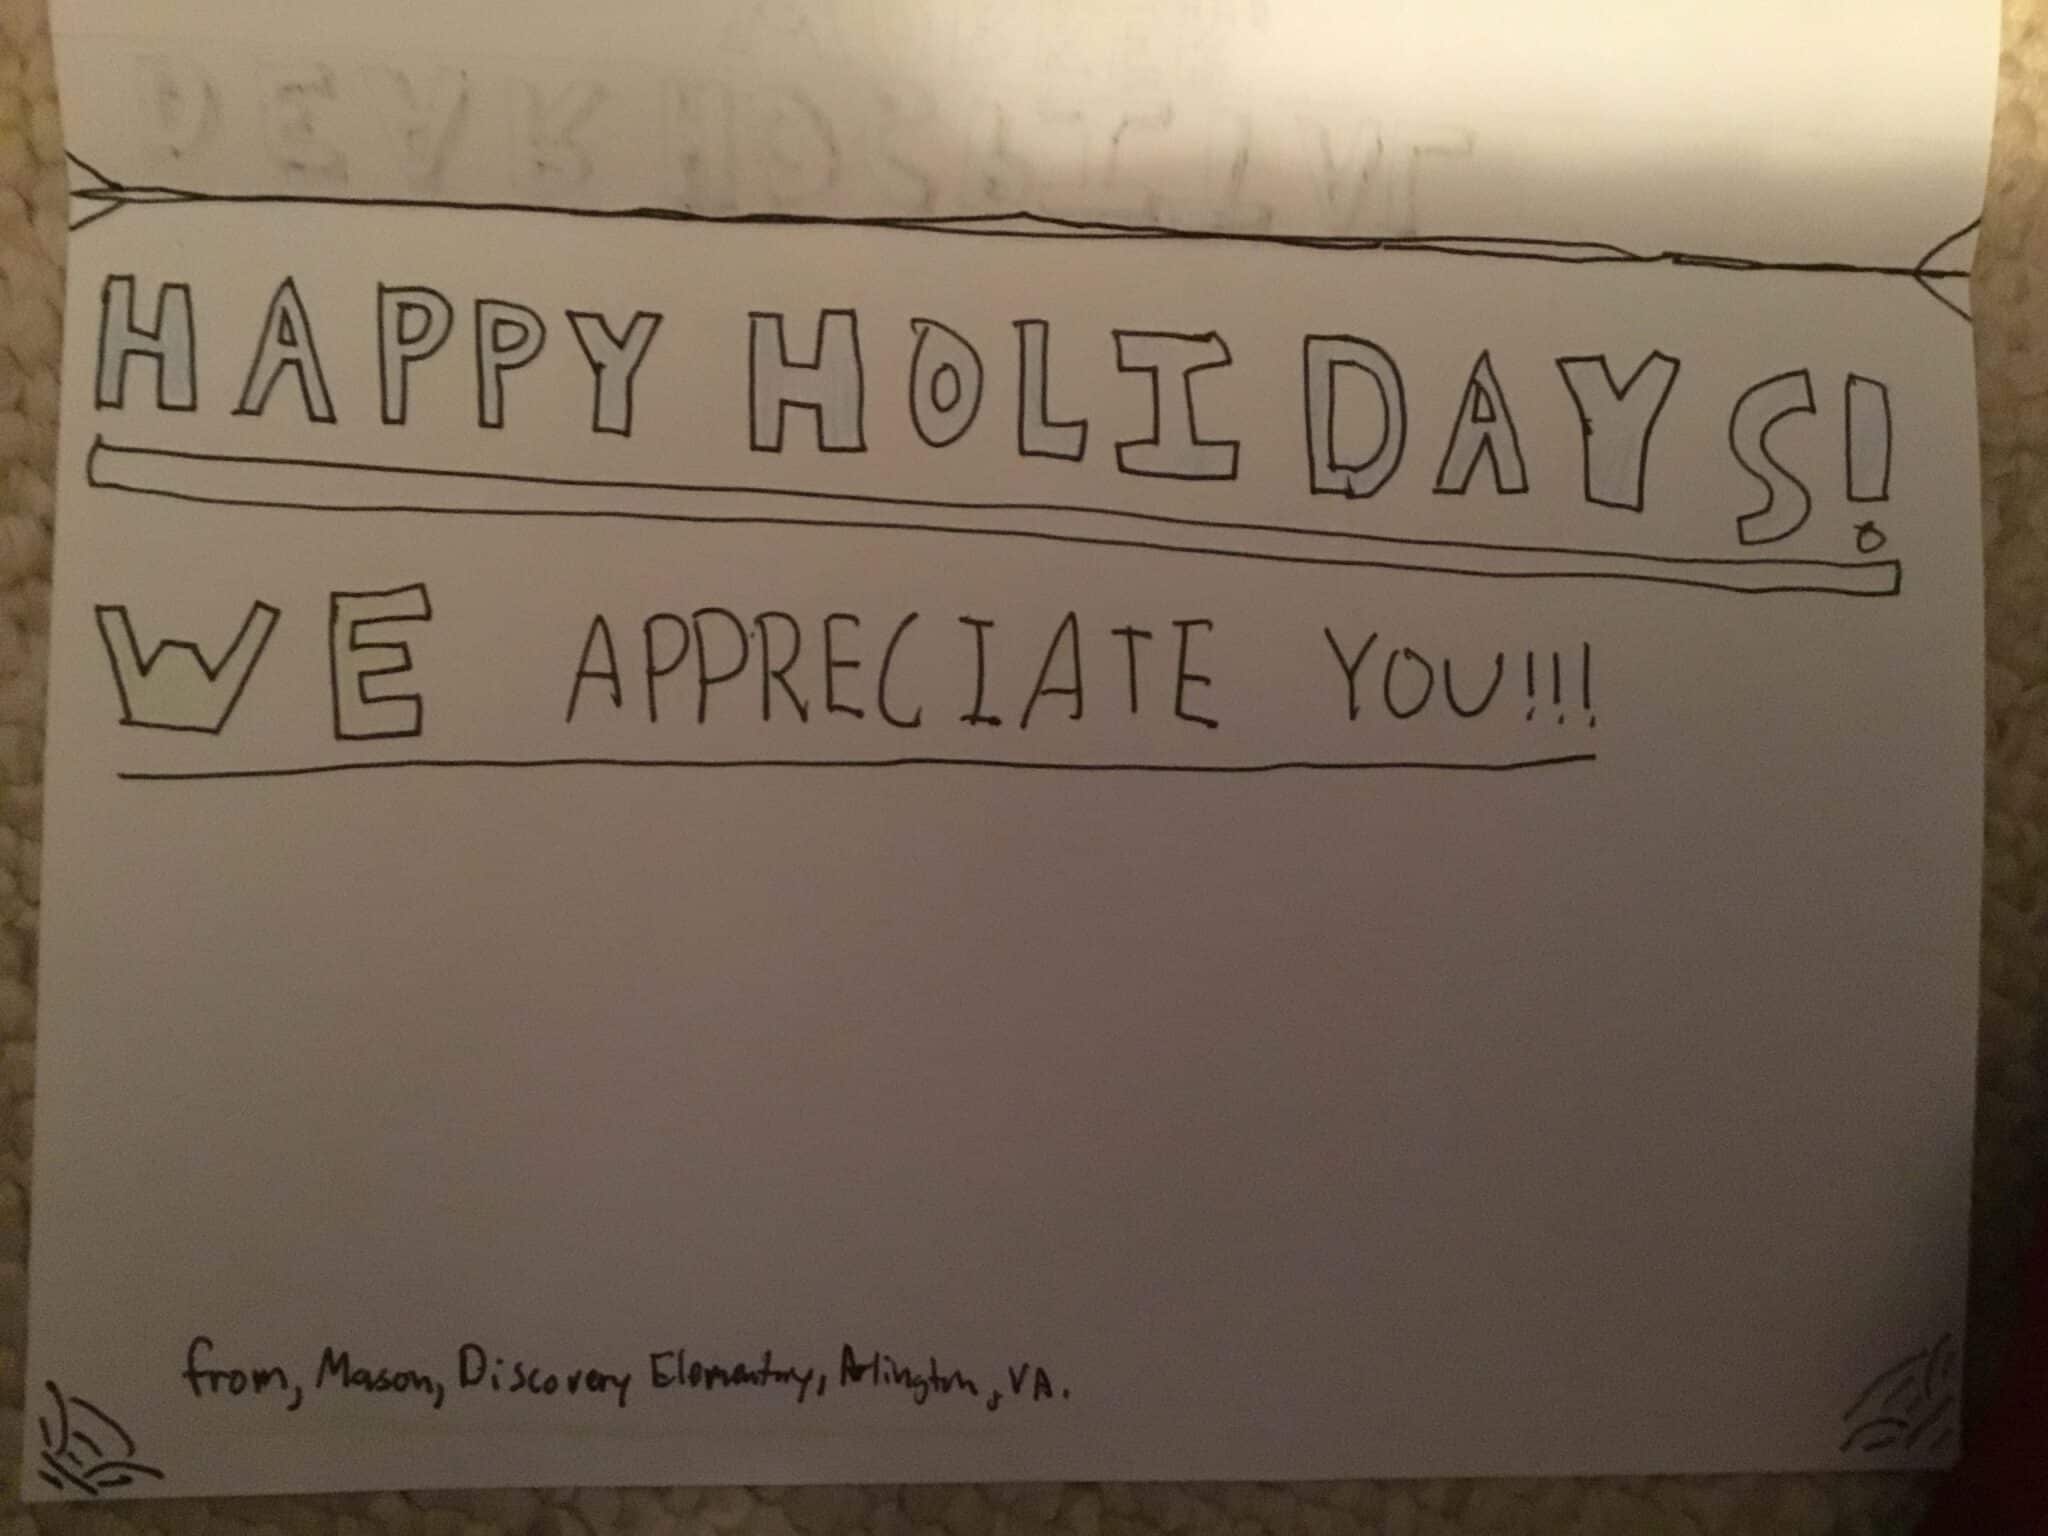 DEAR HOSPITAL
HAPPY HOLIDAYS!
WE APPRECIATE YOU!!!
from, Mason, Discovery Elementary, Arlington, VA.